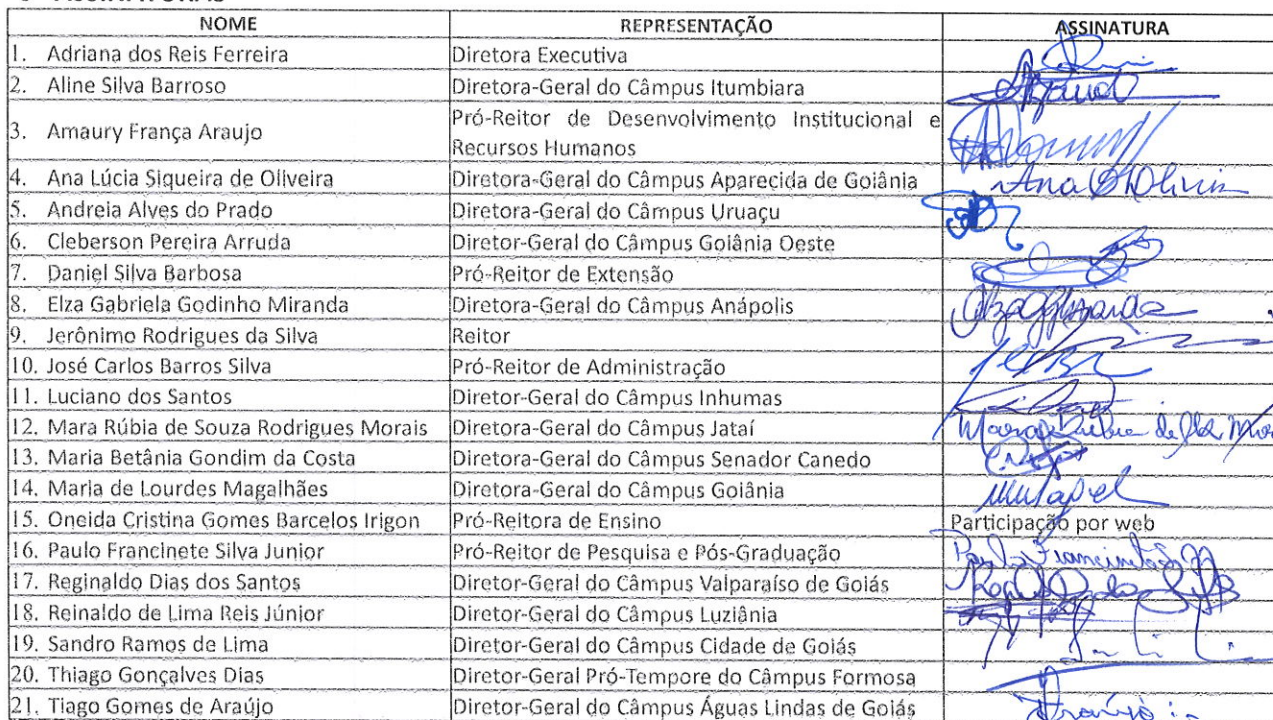 NOME REPRESENTAÇÃO ASSINATURA
1. Adriana dos Reis Ferreira Diretora Executiva
2. Aline Silva Barroso Diretora-Geral do Câmpus Itumbiara
3. Amaury França Araujo Pró-Reitor de Desenvolvimento Institucional e
Recursos Humanos
4. Ana Lúcia Siqueira de Oliveira Diretora-Geral do Câmpus Aparecida de Goiânia Ana
5. Andreia Alves do Prado Diretora-Geral do Câmpus Uruaçu
6. Cleberson Pereira Arruda Diretor-Geral do Câmpus Goiânia Oeste
7. Daniel Silva Barbosa Pró-Reitor de Extensão
8. Elza Gabriela Godinho Miranda Diretora-Geral do Câmpus Anápolis
9. Jerônimo Rodrigues da Silva Reitor
10. José Carlos Barros Silva Pró-Reitor de Administração
11. Luciano dos Santos Diretor-Geral do Câmpus Inhumas
12. Mara Rúbia de Souza Rodrigues Morais Diretora-Geral do Câmpus Jataí
13. Maria Betânia Gondim da Costa Diretora-Geral do Câmpus Senador Canedo
14. Maria de Lourdes Magalhães Diretora-Geral do Câmpus Goiânia
15. Oneida Cristina Gomes Barcelos Irigon Pró-Reitora de Ensino Participação por web
16. Paulo Francinete Silva Junior Pró-Reitor de Pesquisa e Pós-Graduação
17. Reginaldo Dias dos Santos Diretor-Geral do Câmpus Valparaíso de Goiás
18. Reinaldo de Lima Reis Júnior Diretor-Geral do Câmpus Luziânia
19. Sandro Ramos de Lima Diretor-Geral do Câmpus Cidade de Goiás
20. Thiago Gonçalves Dias Diretor-Geral Pró-Tempore do Câmpus Formosa
21. Tiago Gomes de Araújo Diretor-Geral do Câmpus Águas Lindas de Goiás